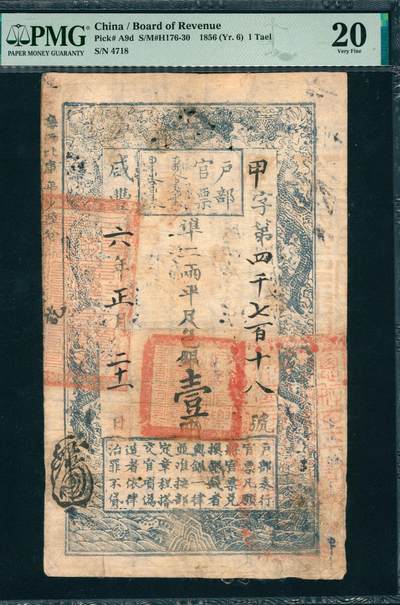 PMG
PAPER MONEY GUARANTY
China / Board of Revenue
Pick# A9d S/M#H176-30 1856 (Yr. 6) 1 Tael
S/N 4718
20
Very Fine
戶部
官票
甲字第四千七百十八號
準二兩平足色銀壹兩
咸豐六年正月二十二日
戶部奏行
官票凡願
將官票兌
換銀錢者
與銀一律
並准按部
定章程搭
交官項偽
造者依律
治罪不貸